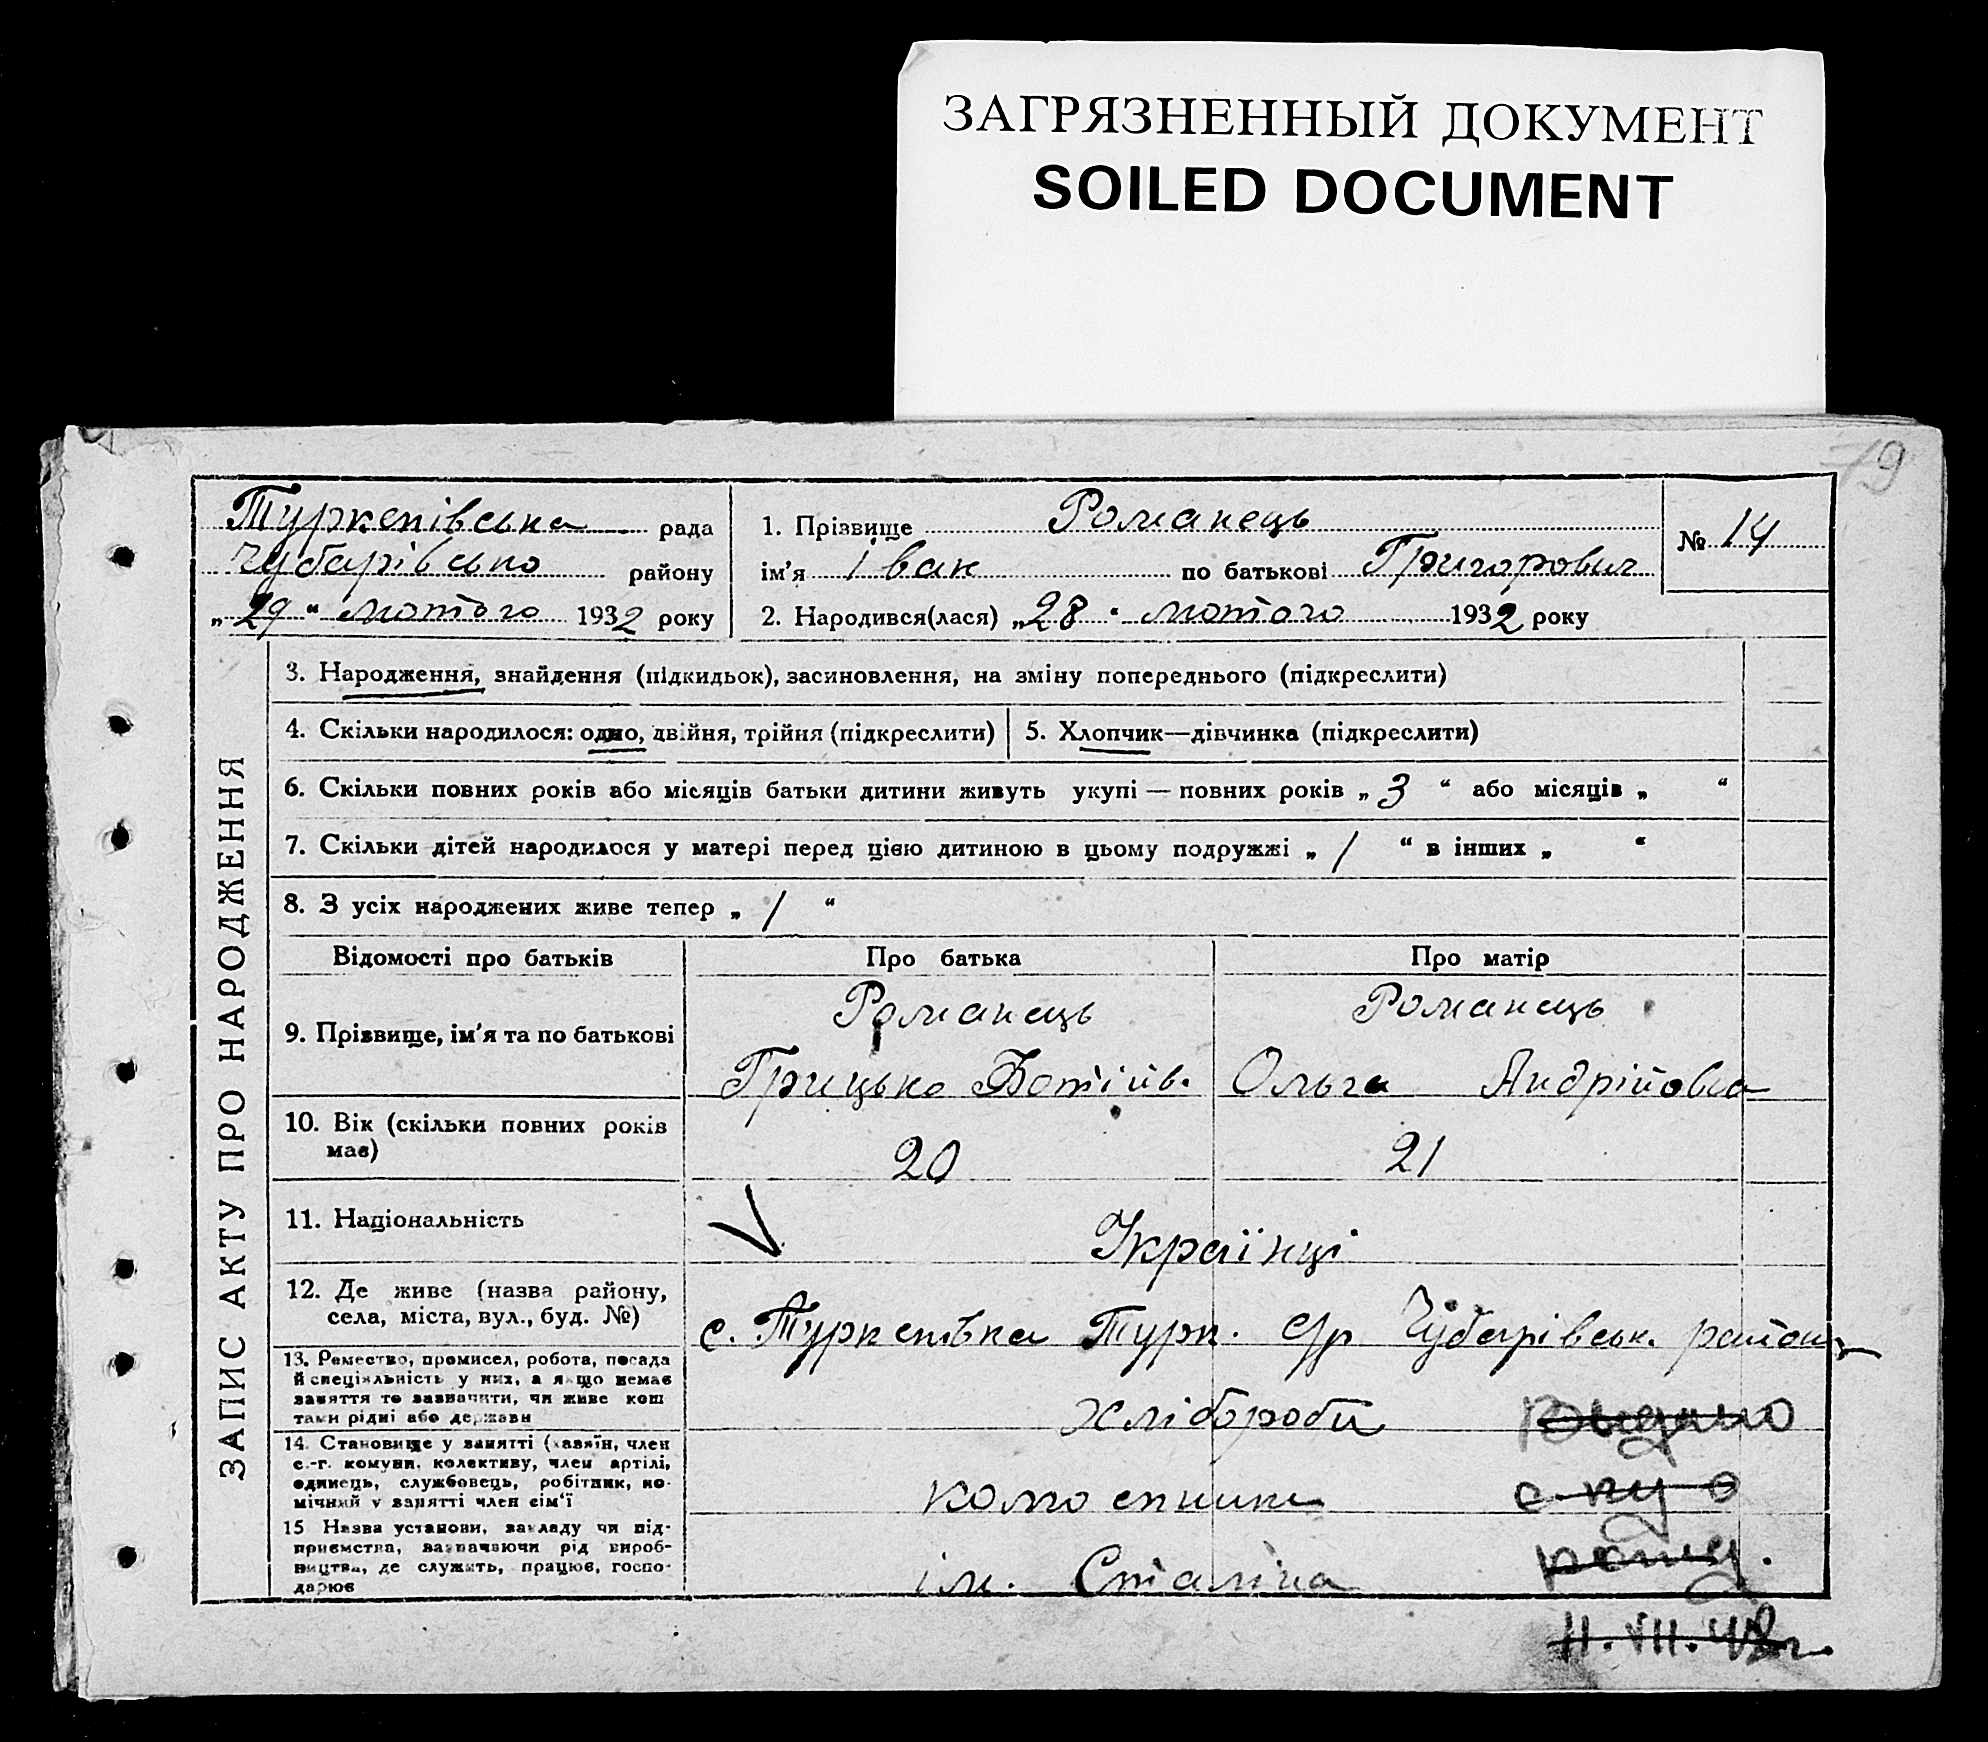 ЗАГРЯЗНЕННЫЙ ДОКУМЕНТ
SOILED DOCUMENT
9
Туркенівська рада
Чубарівсько району
„29“ лютого 1932 року
1. Прізвище Романець
ім'я Іван по батькові Григорович
2. Народився(лася) „28“ лютого 1932 року
№ 14
ЗАПИС АКТУ ПРО НАРОДЖЕННЯ
3. Народження, знайдення (підкидьок), засиновлення, на зміну попереднього (підкреслити)
4. Скільки народилося: одно, двійня, трійня (підкреслити)
5. Хлопчик—дівчинка (підкреслити)
6. Скільки повних років або місяців батьки дитини живуть укупі — повних років „3“ або місяців „ “
7. Скільки дітей народилося у матері перед цією дитиною в цьому подружжі „1“ в інших „ “
8. З усіх народжених живе тепер „1“
Відомості про батьків Про батька Про матір
9. Прізвище, ім'я та по батькові
Романець
Грицько
Романець
Ольга Андрійовна
10. Вік (скільки повних років
має)
20 21
11. Національність
Українці
12. Де живе (назва району,
села, міста, вул., буд. №)
с. Туркенівка Турк. с/р Чубарівськ. району
13. Ремество, промисел, робота, посада
й спеціяльність у них, а якщо немає
заняття то зазначити, чи живе кош
тами рідні або держави
хлібороби
14. Становище у занятті (хазяїн, член
с.-г. комуни, колективу, член артілі,
одинець, службовець, робітник, по-
мічний у занятті член сім'ї
колгоспники
15 Назва установи, закладу чи під-
приємства, зазначаючи рід вироб-
ництва, де служить, працює, госпо-
дарює
ім. Сталіна
Видано
11.VII.48г.